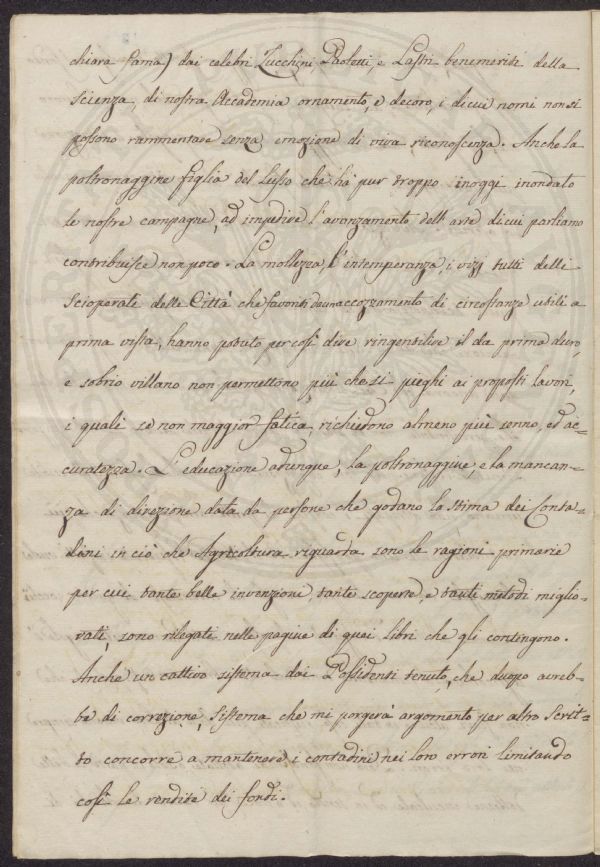 chiara fama) dai celebri Zucchini, Paoletti, e Lastri benemeriti della
scienza, di nostra Accademia ornamento, e decoro, i di cui nomi non si
possono rammentare senza emozione di viva riconoscenza. Anche la
poltronaggine figlia del lusso che hà pur troppo inoggi inondato
le nostre campagne, ad impedire l'avanzamento dell'arte di cui parliamo
contribuisce non poco. La mollezza, l'intemperanza, i vizj tutti delli
scioperati delle Città che favoriti da un accozzamento di circostanze utili a
prima vista, hanno potuto per così dire ringentilire il da prima duro,
e sobrio villano non permettono più che si pieghi ai proposti lavori,
i quali se non maggior fatica, richiedono almeno più senno, ed ac=
curatezza. L'educazione adunque, la poltronaggine, e la mancan=
za di direzione data da persone che godano la stima dei Conta=
dini in ciò che Agricoltura riguarda sono le ragioni primarie
per cui tante belle invenzioni, tante scoperte, e tanti metodi miglio=
rati, sono rilegati nelle pagine di quei libri che gli contengono.
Anche un cattivo sistema dai Possidenti tenuto, che duopo avreb=
be di correzione, sistema che mi porgerà argomento per altro scrit=
to concorre a mantenere i contadini nei loro errori limitando
così le rendite dei fondi.